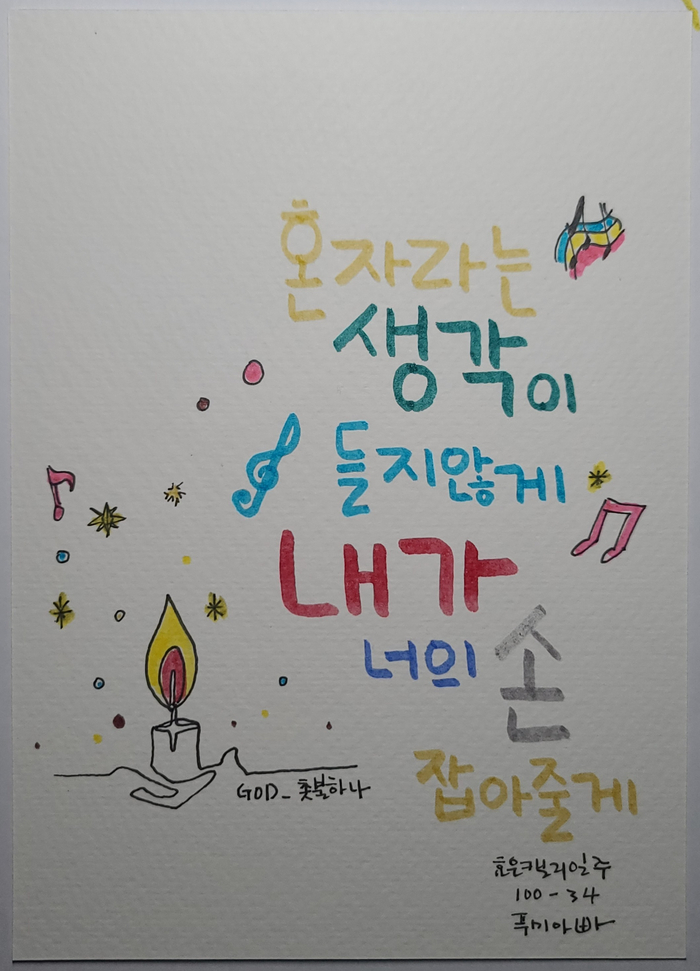 혼자라는
생각이
들지않게
내가
너의 손
잡아줄게
GOD_촛불하나
효은캘리일주
100-34
푸미아빠